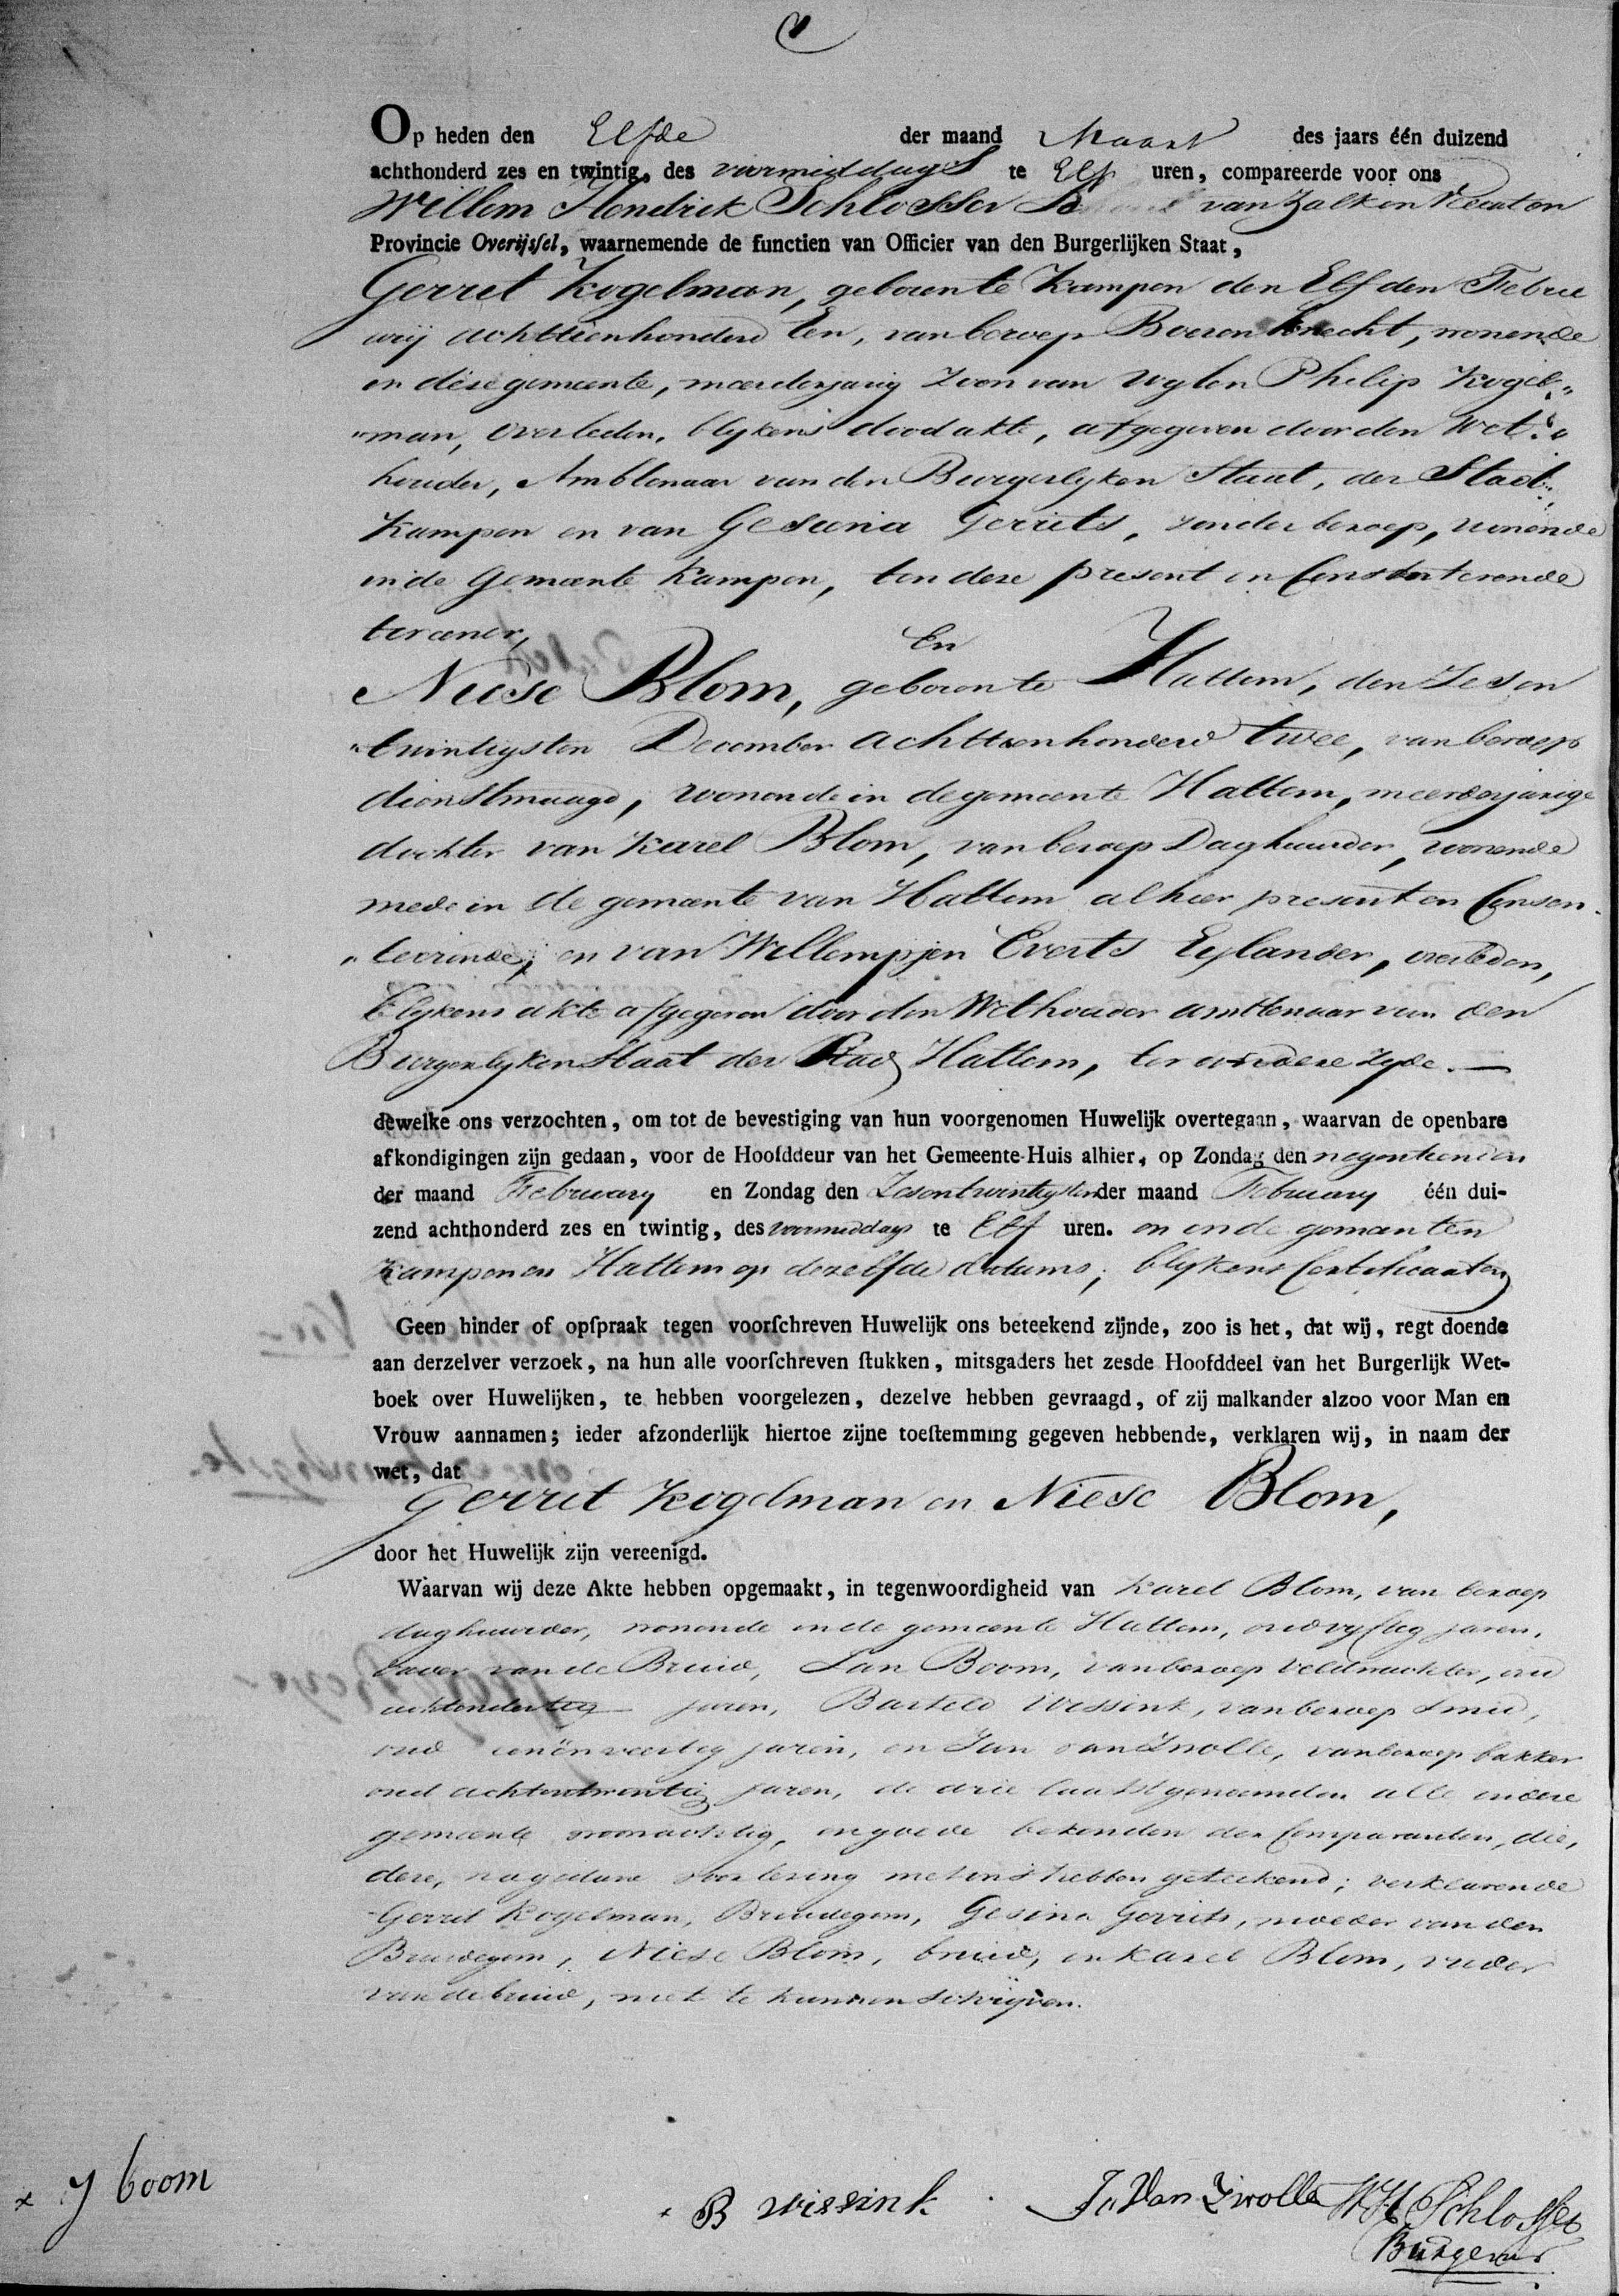 Op heden den Elfde der maand Maart des jaars één duizend
achthonderd zes en twintig, des voormiddags te Elf uren, compareerde voor ons
Willem Hendrik Schlosser van Zalk en Veeaten
Provincie Overijssel, waarnemende de functien van Officier van den Burgerlijken Staat,
Gerret Kogelman, geboren te Kampen den Elfden Febru
arij achttienhonderd een, van beroep Boerenknecht, wonende
in dése gemeente, meerderjarig zoon van wylen Philip Kogel„
„man, overleden, blykens doodakte, afgegeven door den Wet„
houder, Ambtenaar van den Burgerlyken Staat, der Stad
Kampen en van Gesuna Gerrets, zonder beroep, wonende
in de Gemeente Kampen, ten deze present en Consenterende
ter eener, En
Niese Blom, geboren te Hattem, den Zesen
„twintigsten December achttienhonderd twee, van beroep
dienstmaagd, wonende in de gemeente Hattem, meerderjarige
dochter van Karel Blom, van beroep Daghuurder, wonende
mede in de gemeente van Hattem alhier present en Consen„
„teerende, en van Willempjen Everts Eylander, overleden,
blykens akte afgegeven door den Wethouder ambtenaar van den
Burgerlyken Staat der Stad Hattem, ter andere zyde. —
dewelke ons verzochten, om tot de bevestiging van hun voorgenomen Huwelijk overtegaan, waarvan de openbare
afkondigingen zijn gedaan, voor de Hoofddeur van het Gemeente-Huis alhier, op Zondag den negentienden
der maand February en Zondag den Zesentwintigsten der maand February één dui-
zend achthonderd zes en twintig, des voormiddags te Elf uren. en in de gemeenten
Kampen en Hattem op dezelfde datums, blykens Certificaaten
Geen hinder of opspraak tegen voorschreven Huwelijk ons beteekend zijnde, zoo is het, dat wij, regt doende
aan derzelver verzoek, na hun alle voorschreven stukken, mitsgaders het zesde Hoofddeel van het Burgerlijk Wet-
boek over Huwelijken, te hebben voorgelezen, dezelve hebben gevraagd, of zij malkander alzoo voor Man en
Vrouw aannamen; ieder afzonderlijk hiertoe zijne toestemming gegeven hebbende, verklaren wij, in naam der
wet, dat
Gerrit Kogelman en Niese Blom,
door het Huwelijk zijn vereenigd.
Waarvan wij deze Akte hebben opgemaakt, in tegenwoordigheid van Karel Blom, van beroep
daghuurder, wonende in de gemeente Hattem, oud vyftig jaren,
vader van de Bruid, Jan Boom, van beroep veldwachter, oud
achtendertig jaren, Barteld Wissink, van beroep Smid,
oud eenënveertig jaren, en Jan van Zwolle, van beroep bakker
oud achtentwentig jaren, de drie laatstgenoemden alle in deze
gemeente woonachtig, en goede bekenden der Comparanten, die,
deze, na gedane voorlezing met ons hebben geteekend; verklarende
Gerrit Kogelman, Bruidegom, Gesina Gerrits, moeder van den
Bruidegom, Niese Blom, bruid, en Karel Blom, vader
van de bruid, niet te kunnen schrijven.
J boom
B wissink
J. Van Zwolle W H Schlosser
Burgemr